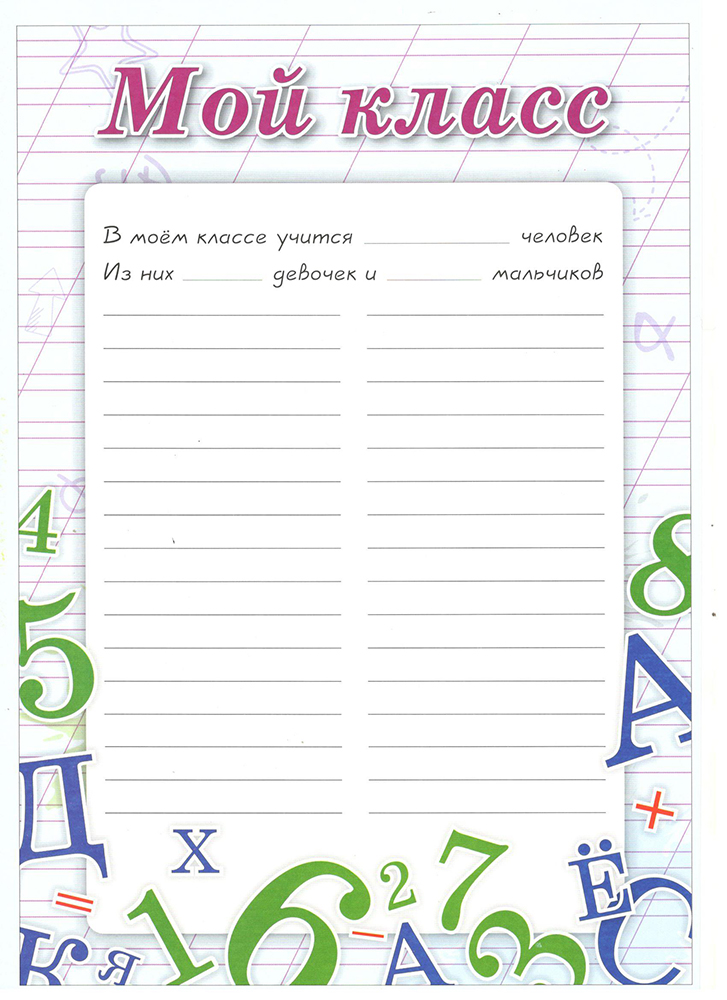 Мой класс
В моём классе учится ______ человек
Из них ______ девочек и ______ мальчиков
4
8
5
А
Д
+
Х
7
2
Ё
=
1
6
-
А
3
С
К
Я